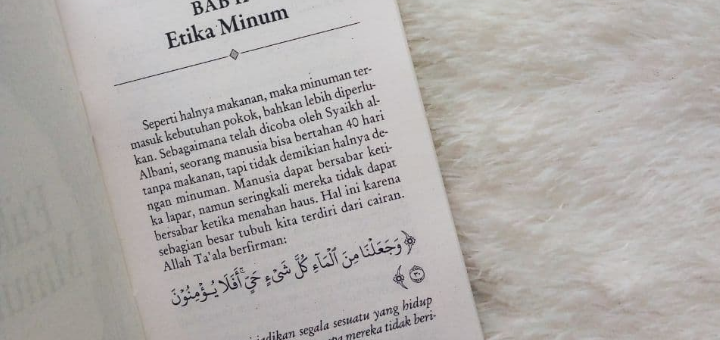 BAB
Etika Minum
Seperti halnya makanan, maka minuman ter-
masuk kebutuhan pokok, bahkan lebih diperlu-
kan. Sebagaimana telah dicoba oleh Syaikh al-
Albani, seorang manusia bisa bertahan 40 hari
tanpa makanan, tapi tidak demikian halnya de-
ngan minuman. Manusia dapat bersabar keti-
ka lapar, namun seringkali mereka tidak dapat
bersabar ketika menahan haus. Hal ini karena
sebagian besar tubuh kita terdiri dari cairan.
Allah Ta'ala berfirman:
﴿ وَجَعَلْنَا مِنَ ٱلْمَآءِ كُلَّ شَىْءٍ حَىٍّ ۖ أَفَلَا يُؤْمِنُونَ
٣٠ ﴾
jadikan segala sesuatu yang hidup
mereka tidak beri-